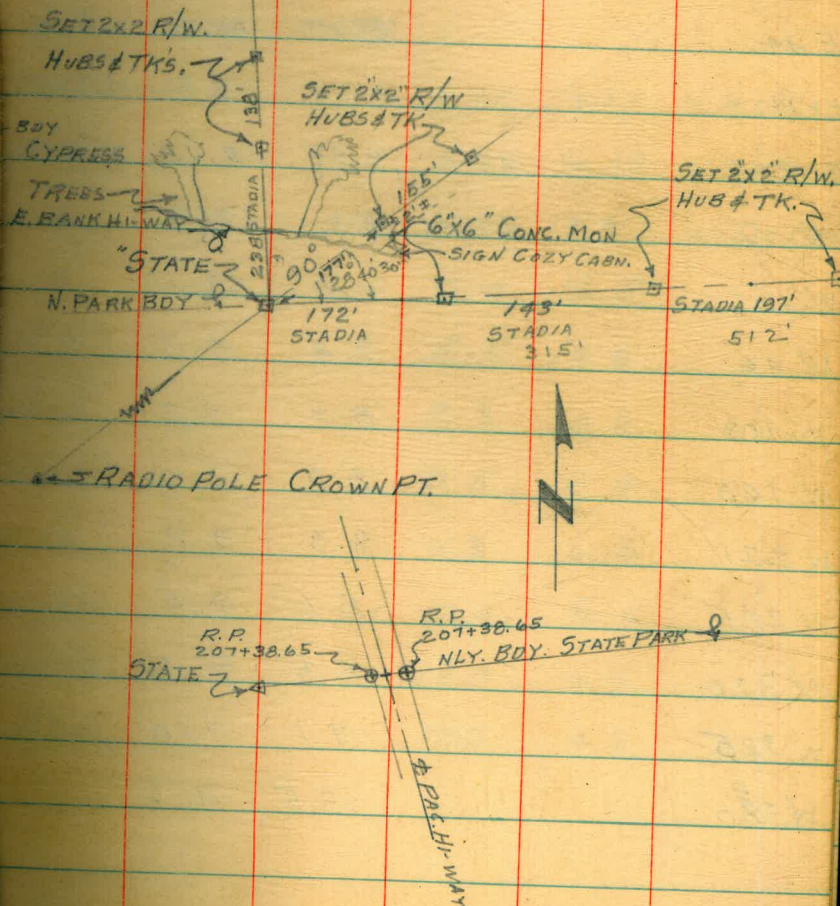 SET 2x2 R/W.
HUBS & TK'S.
138'
SET 2"x2" R/W
HUBS & TK.
BDY
CYPRESS
TREES
E. BANK HI-WAY
155'
6"X6" CONC. MON
SIGN COZY CABN.
SET 2"x2" R/W.
HUB & TK.
"STATE
238 STADIA
90°
177'
28° 40' 30"
N. PARK BDY
172'
STADIA
143'
STADIA
315'
STADIA 197'
512'
RADIO POLE CROWN PT.
N
R.P.
207+38.65
R.P.
207+38.65
STATE
NLY. BDY. STATE PARK
℄ PAC. HI-WAY